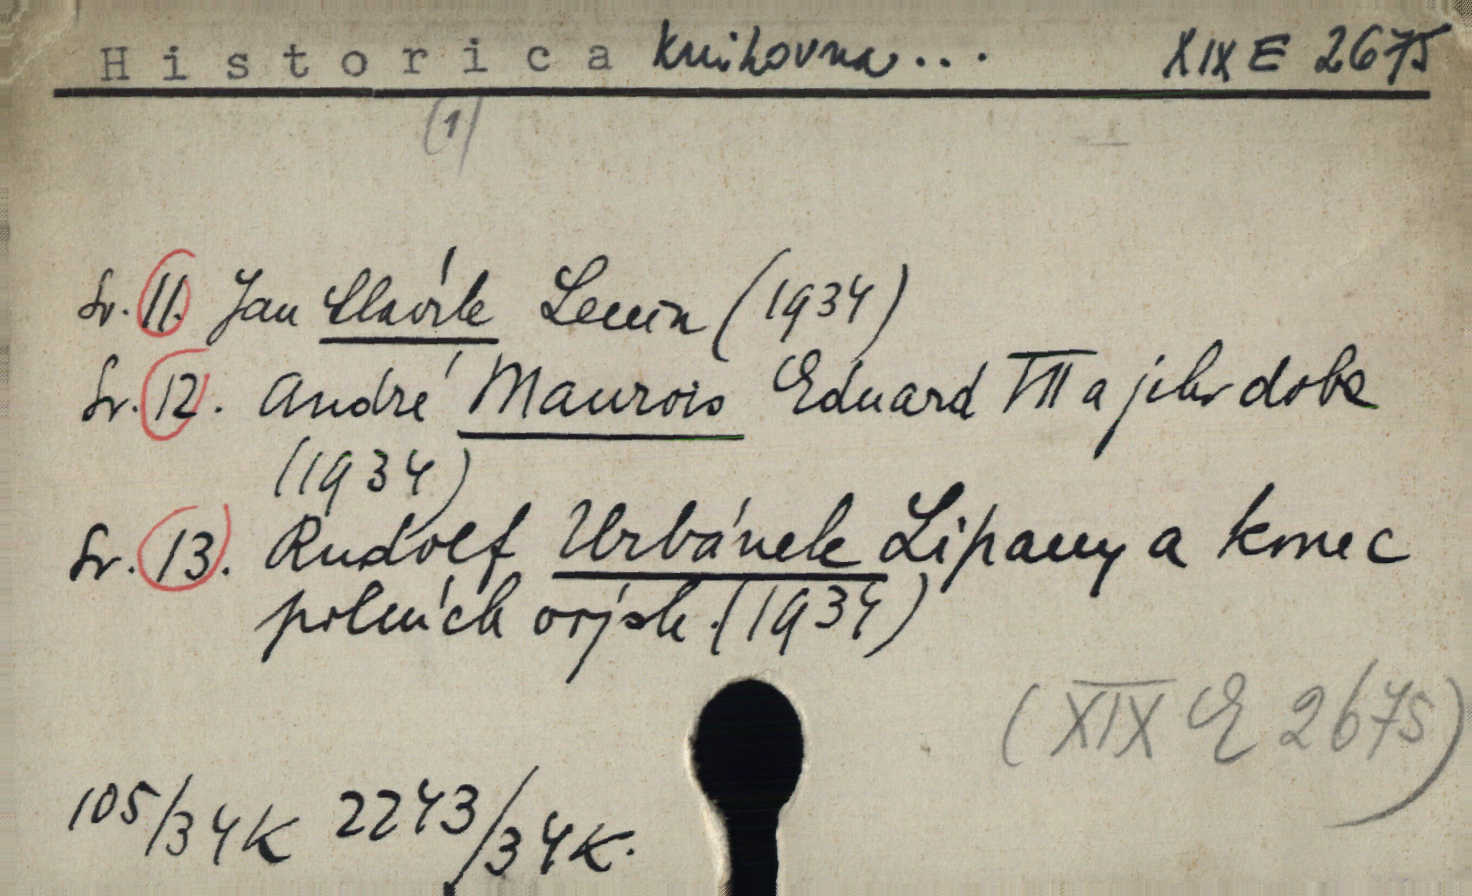 Historica knihovna... XIX E 2675
(1)
Sv. 11. Jan Slavík Lenin (1934)
Sv. 12. André Maurois Eduard VII a jeho doba
(1934)
Sv. 13. Rudolf Urbánek Lipany a konec
polních vojsk. (1934)
(XIX E 2675)
105/34K 2243/34K.